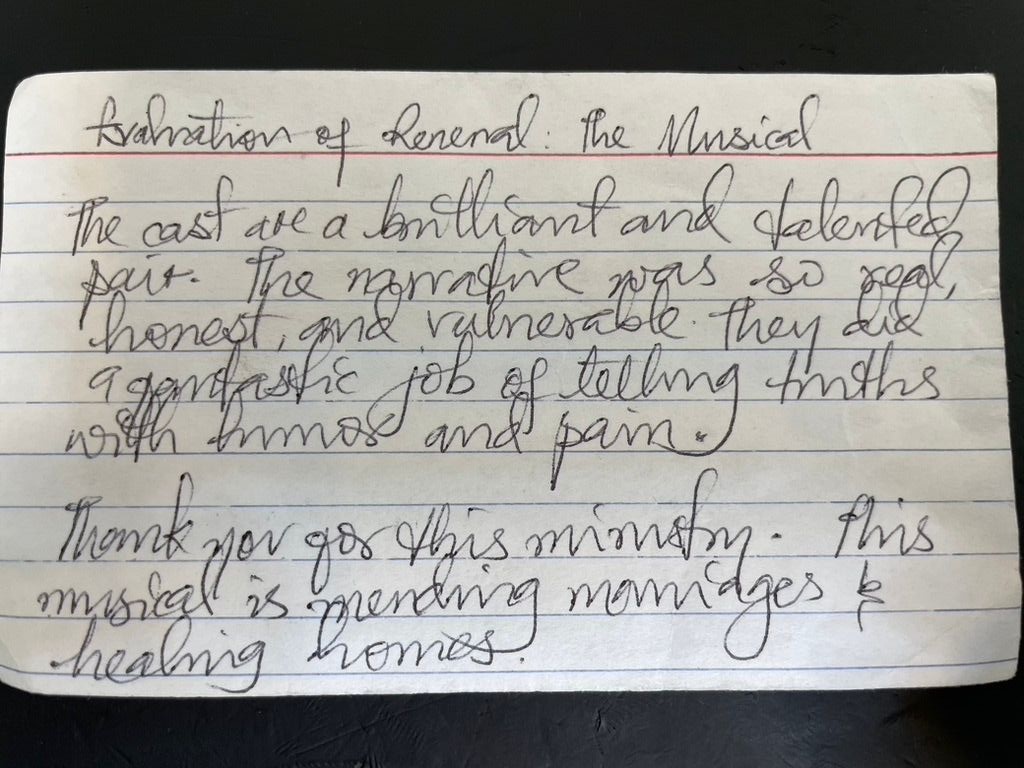 Evaluation of Renewal: The Musical
The cast are a brilliant and talented
pair. The narrative was so real,
honest, and vulnerable. They did
a fantastic job of telling truths
with humor and pain.
Thank you for this ministry. This
musical is mending marriages &
healing homes.